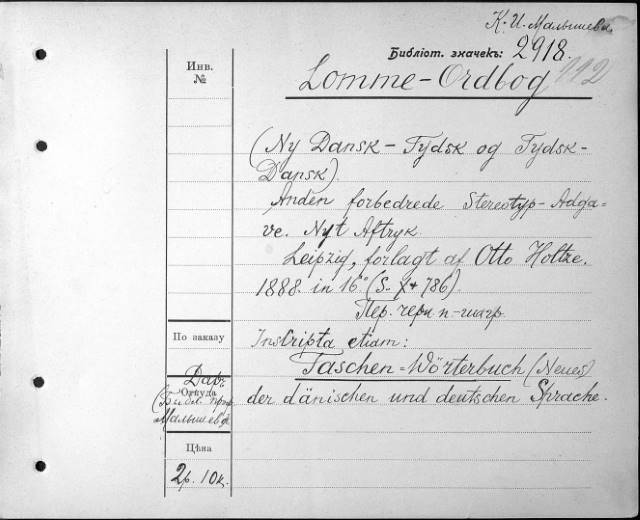 К. И. Малышева.
Библіот. значекъ: 2918.
112
Инв.
№
Lomme-Ordbog
(Ny Dansk-Tydsk og Tydsk-
Dansk).
Anden forbedrede Stereotyp-Adga=
ve. Nyt Aftryk
Leipzig, forlagt af Otto Holtze.
1888. in 16° (S. X + 786).
Пер. черн п.-шагр.
По заказу
Inscripta etiam:
Taschen=Wörterbuch (Neues)
Даръ
Откуда
(Библ. проф.
Малышева)
der dänischen und deutschen Sprache.
Цѣна
2р. 10к.